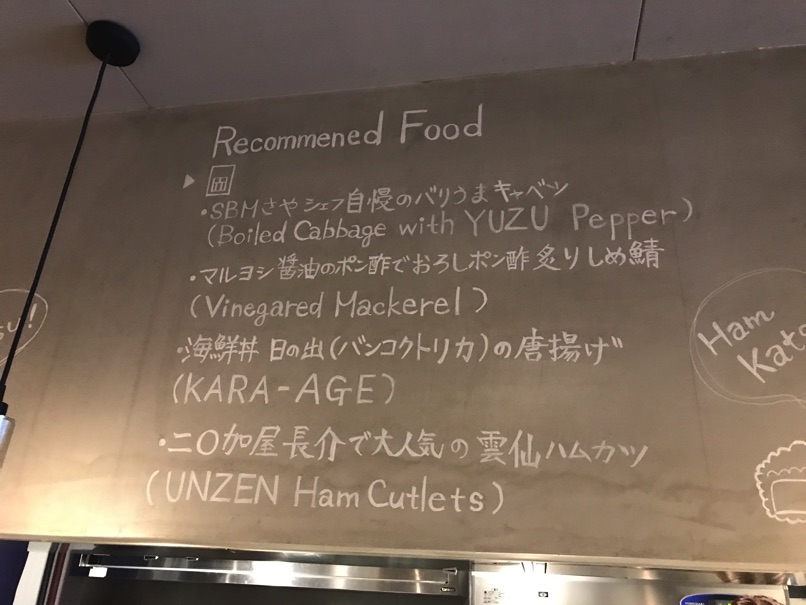 Recommened Food
・SBMさやシェフ自慢のバリうまキャベツ
(Boiled Cabbage with YUZU Pepper)
・マルヨシ醤油のポン酢でおろしポン酢炙りしめ鯖
(Vinegared Mackerel)
・海鮮丼 日の出(バンコクトリカ)の唐揚げ
(KARA-AGE)
・二〇加屋長介で大人気の雲仙ハムカツ
(UNZEN Ham Cutlets)
Ham